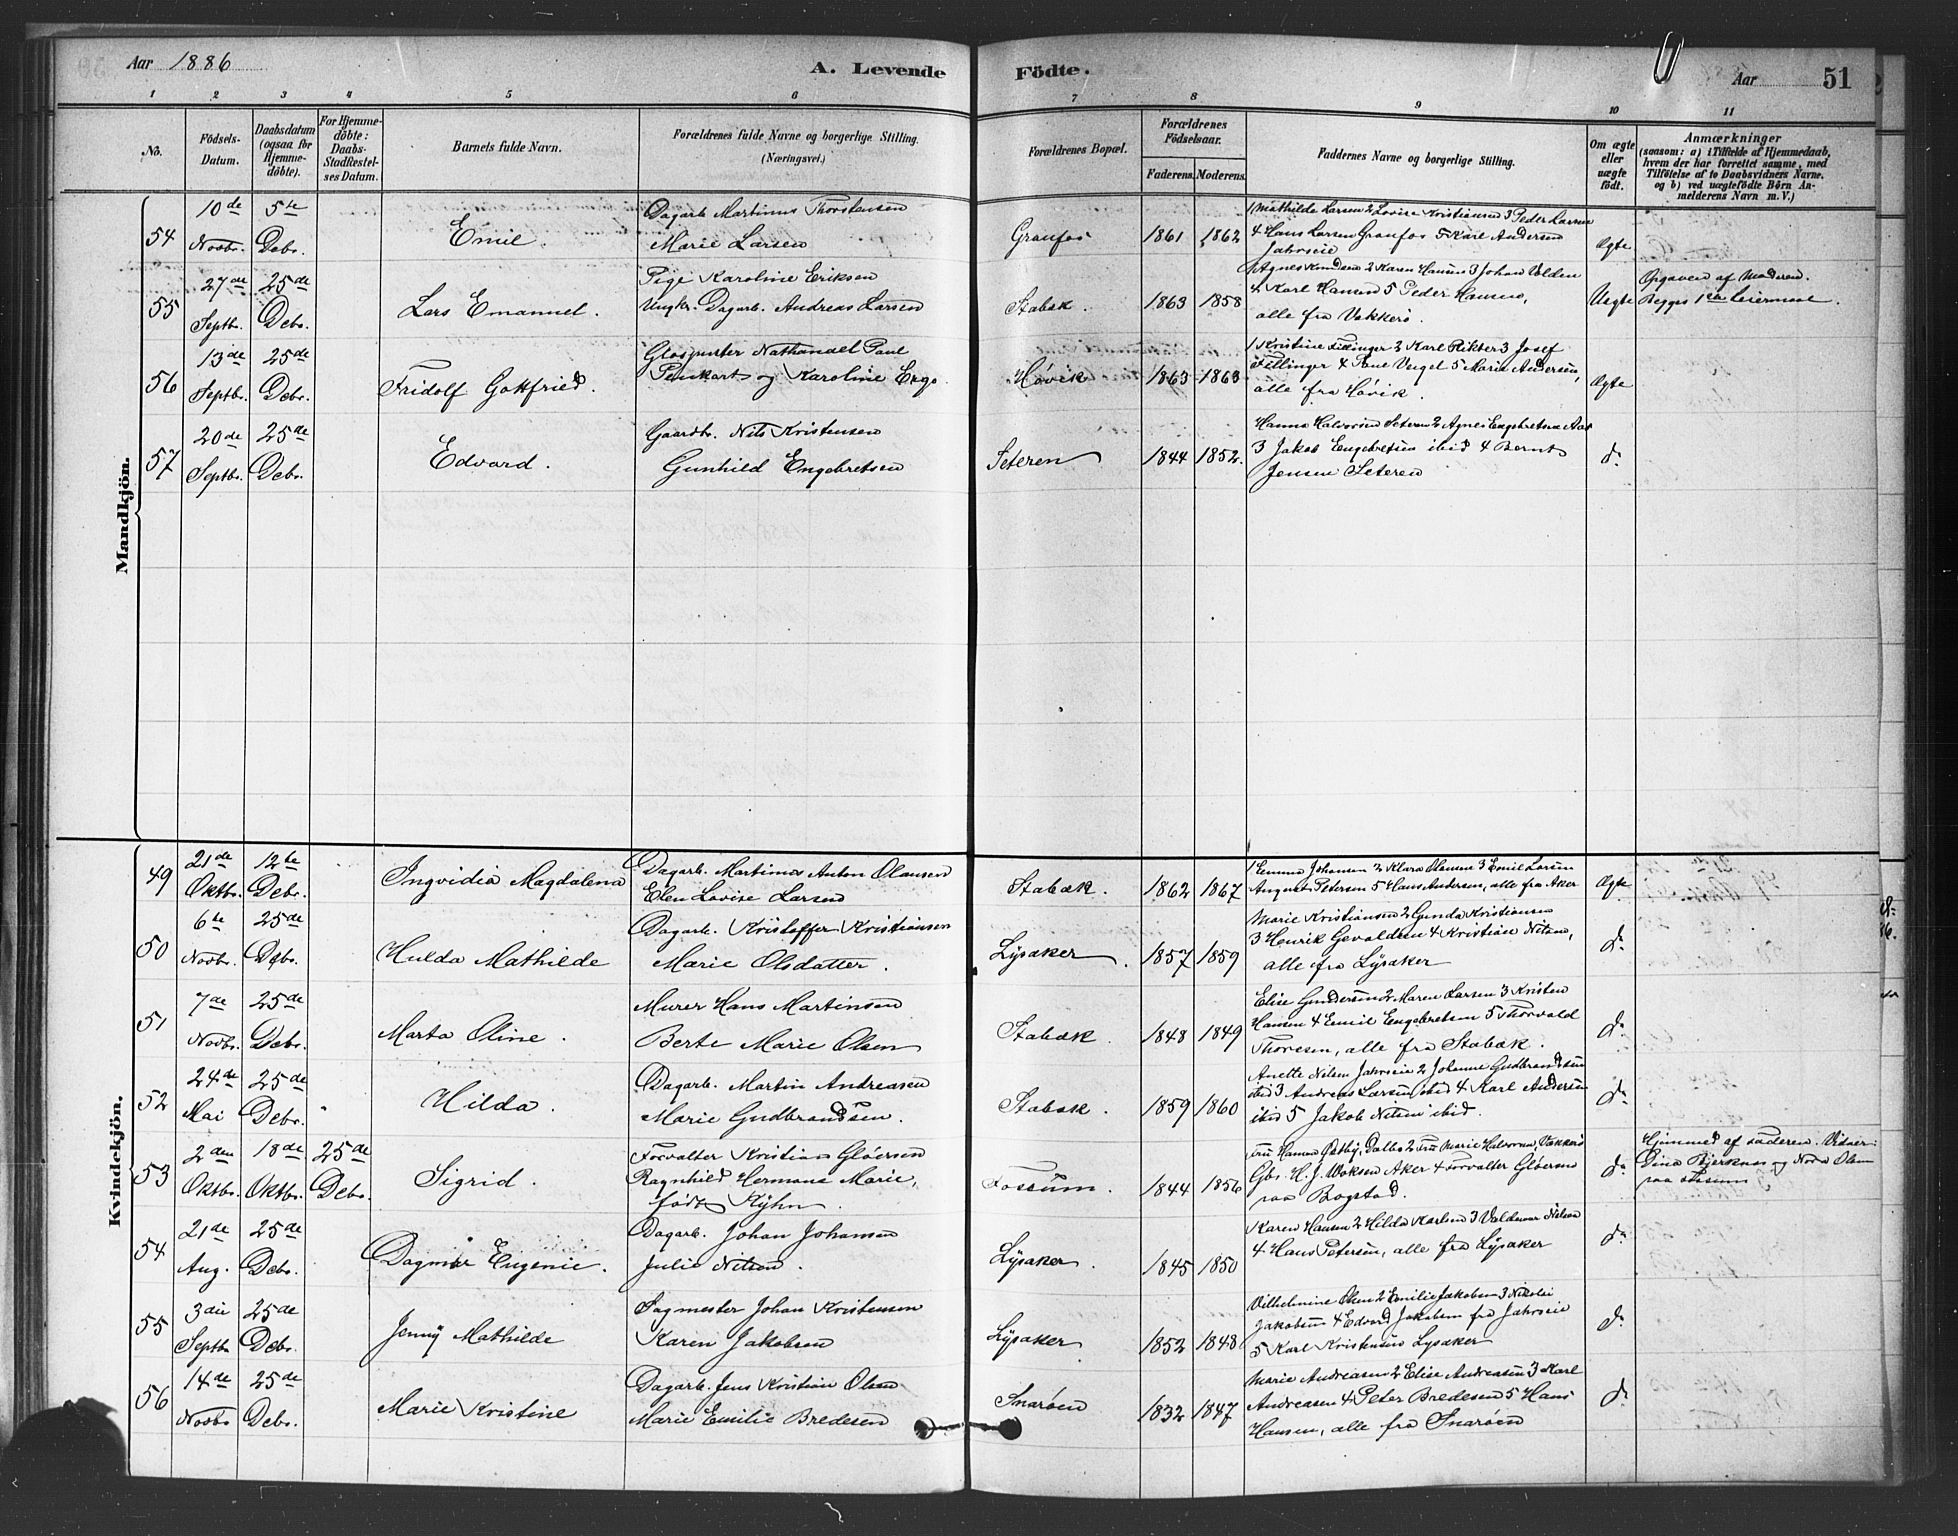 Aar 1886
A. Levende
Födte.
Aar
51
1 2 3 4 5 6 7 8 9 10 11
No.
Födsels-Datum.
Daabsdatum (ogsaa for Hjemme-döbte).
For Hjemme-döbte: Daabs-Stadfæstel-ses Datum.
Barnets fulde Navn.
Forældrenes fulde Navne og borgerlige Stilling.
(Næringsvei.)
Forældrenes Bopæl.
Forældrenes Födselsaar.
Faderens. Moderens.
Faddernes Navne og borgerlige Stilling.
Om ægte eller uægte födt.
Anmærkninger
(saasom: a) i Tilfælde af Hjemmedaab,
hvem der har forrettet samme, med
Tilföielse af to Daabsvidners Navne,
og b) ved uægtefödte Börn An-
melderens Navn m. V.)
Mandkjön.
54
10de Novbr.
5te Debr.
Emil.
Dagarb. Martinus Thorstensen
Marie Larsen
Granfos
1861 1862
1 Mathilde Larsen 2 Lovise Kristiansen 3 Peder Larsen
4 Hans Larsen Granfos 5 Karl Andersen
Jahrseie
Ægte
55
27de Septbr.
25de Debr.
Lars Emanuel.
Pige Karoline Eriksen
Ungkr. Dagarb. Andreas Larsen
Stabæk.
1863 1858
1 Agnes Knudsen 2 Karen Hansen 3 Johan Volden
4 Karl Hansen 5 Peder Hansen,
alle fra Vækkerø.
Uægte
Opgaven af Moderen.
Begges 1ste Leiermaal.
56
13de Septbr.
25de Debr.
Fridolf Gottfried.
Glaspuster Nathanael Paul
Penkert og Karoline
Høvik
1863 1863
1 Kristine Fellinger 2 Karl Rikter 3 Josef
Fellinger 4 Veigel 5 Marie Andersen,
alle fra Høvik.
Ægte
57
20de Septbr.
25de Debr.
Edvard.
Gaardbr. Nils Kristensen
Gunhild Engebretsen
Seteren
1844 1852.
Hanna Halvorsen Seteren 2 Agnes Engebretsen
3 Jakob Engebretsen ibid 4 Bernt
Jensen Seteren
do
Kvindekjön.
49
21de Oktbr.
12te Debr.
Ingvidia Magdalena
Dagarb. Martinus Anton Olausen
Elen Lovise Larsen
Stabæk.
1862 1867
1 Emma Johansen 2 Klara Olausen 3 Emil Larsen
August Petersen 5 Hans Andersen, alle fra Aker
Ægte
50
6te Novbr.
25de Debr.
Hulda Mathilde
Dagarb. Kristoffer Kristiansen
Marie Olsdatter.
Lysaker
1857 1859
Marie Kristiansen 2 Gunda Kristiansen
3 Henrik Gevaldsen 4 Kristian Nilsen,
alle fra Lysaker
do
51
7de Novbr.
25de Debr.
Marta Oline.
Murer Hans Martinsen
Berte Marie Olsen
Stabæk.
1848 1849
Elise Gundersen 2 Maren Larsen 3 Kristen
Hansen 4 Emil Engebretsen 5 Thorvald
Thoresen, alle fra Stabæk.
do
52
24de Mai
25de Debr.
Hilda.
Dagarb. Martin Andreasen
Marie Gudbrandsen.
Stabæk.
1859 1860
Anette Nilsen Jahrseie 2 Johanne Gudbrandsen
ibid 3 Andreas Larsen ibid 4 Karl Andersen
ibid 5 Jakob Nilsen ibid.
do
53
2den Oktbr.
18de Oktbr.
25de Debr.
Sigrid.
Forvalter Kristian Gløersen
Ragnhild Hermana Marie,
født Kyhn.
Fossum.
1844 1856
Fru Hansen Østby, Dalbo 2 Fru Marie Halvorsen, Vækkerø
Gbr. H. J. Voksen Aker 4 Forvalter Gløersen
paa Bogstad.
do
Hjemmed. af Faderen. Vidner:
Dina Bjerknæs og Nora Olsen
paa Fossum
54
21de Aug.
25de Debr.
Dagmar Eugenie.
Dagarb. Johan Johansen
Julie Nilsen.
Lysaker.
1845 1850
1 Karen Hansen 2 Hilda Karlsen 3 Valdemar Nilsen
4 Hans Petersen, alle fra Lysaker
do
55
3die Septbr
25de Debr.
Jenny Mathilde
Sagmester Johan Kristensen
Karen Jakobsen
Lysaker
1852 1848
Vilhelmine Olsen 2 Emilie Jakobsen 3 Nikolai
Jakobsen 4 Edvard Jakobsen fra Jahrseie
5 Karl Kristensen Lysaker
do
56
14de Novbr
25de Debr.
Marie Kristine
Dagarb. Jens Kristian Olsen
Marie Emilie Bredesen
Snarøen
1832 1847
Marie Andreasen 2 Elise Andreasen 3 Karl
Andreasen 4 Peter Bredesen 5 Hans
Hansen, alle fra Snarøen
do